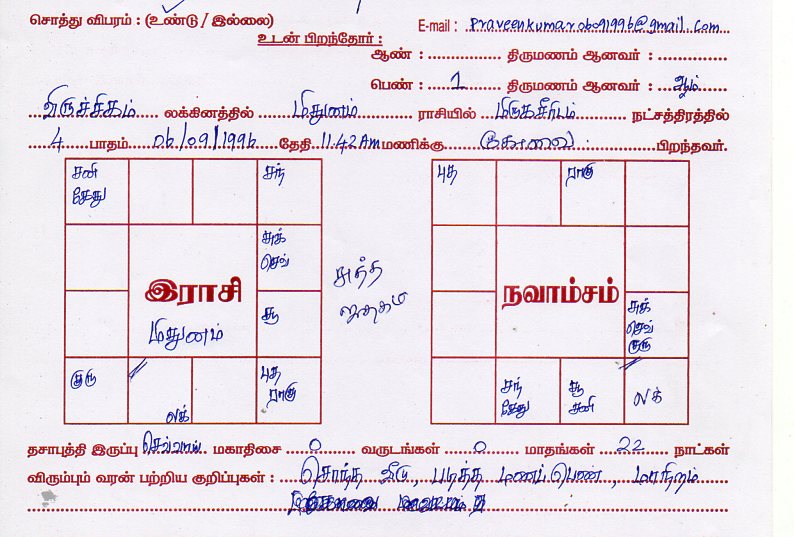 சொத்து விபரம் : (உண்டு / இல்லை)
E-mail : praveenkumar06091996@gmail.com
உடன் பிறந்தோர் :
ஆண் : ............... திருமணம் ஆனவர் : ...............
பெண் : 1 திருமணம் ஆனவர் : ஆம்
விருச்சிகம் லக்கினத்தில் மிதுனம் ராசியில் மிருகசீரிடம் நட்சத்திரத்தில்
4 பாதம் 06/09/1996 தேதி 11.42 Am மணிக்கு கோவை பிறந்தவர்.
சனி கேது
சந்
சுக் செவ்
சூ
புத ராகு
லக்
குரு
இராசி
மிதுனம்
சுத்த ஜாதகம்
புத
ராகு
சுக் செவ் குரு
லக்
சூ சனி
சந் கேது
நவாம்சம்
தசாபுத்தி இருப்பு செவ்வாய் மகாதிசை 0 வருடங்கள் 0 மாதங்கள் 22 நாட்கள்
விரும்பும் வரன் பற்றிய குறிப்புகள் : சொந்த வீடு, படித்த மணப்பெண், மாநிறம்